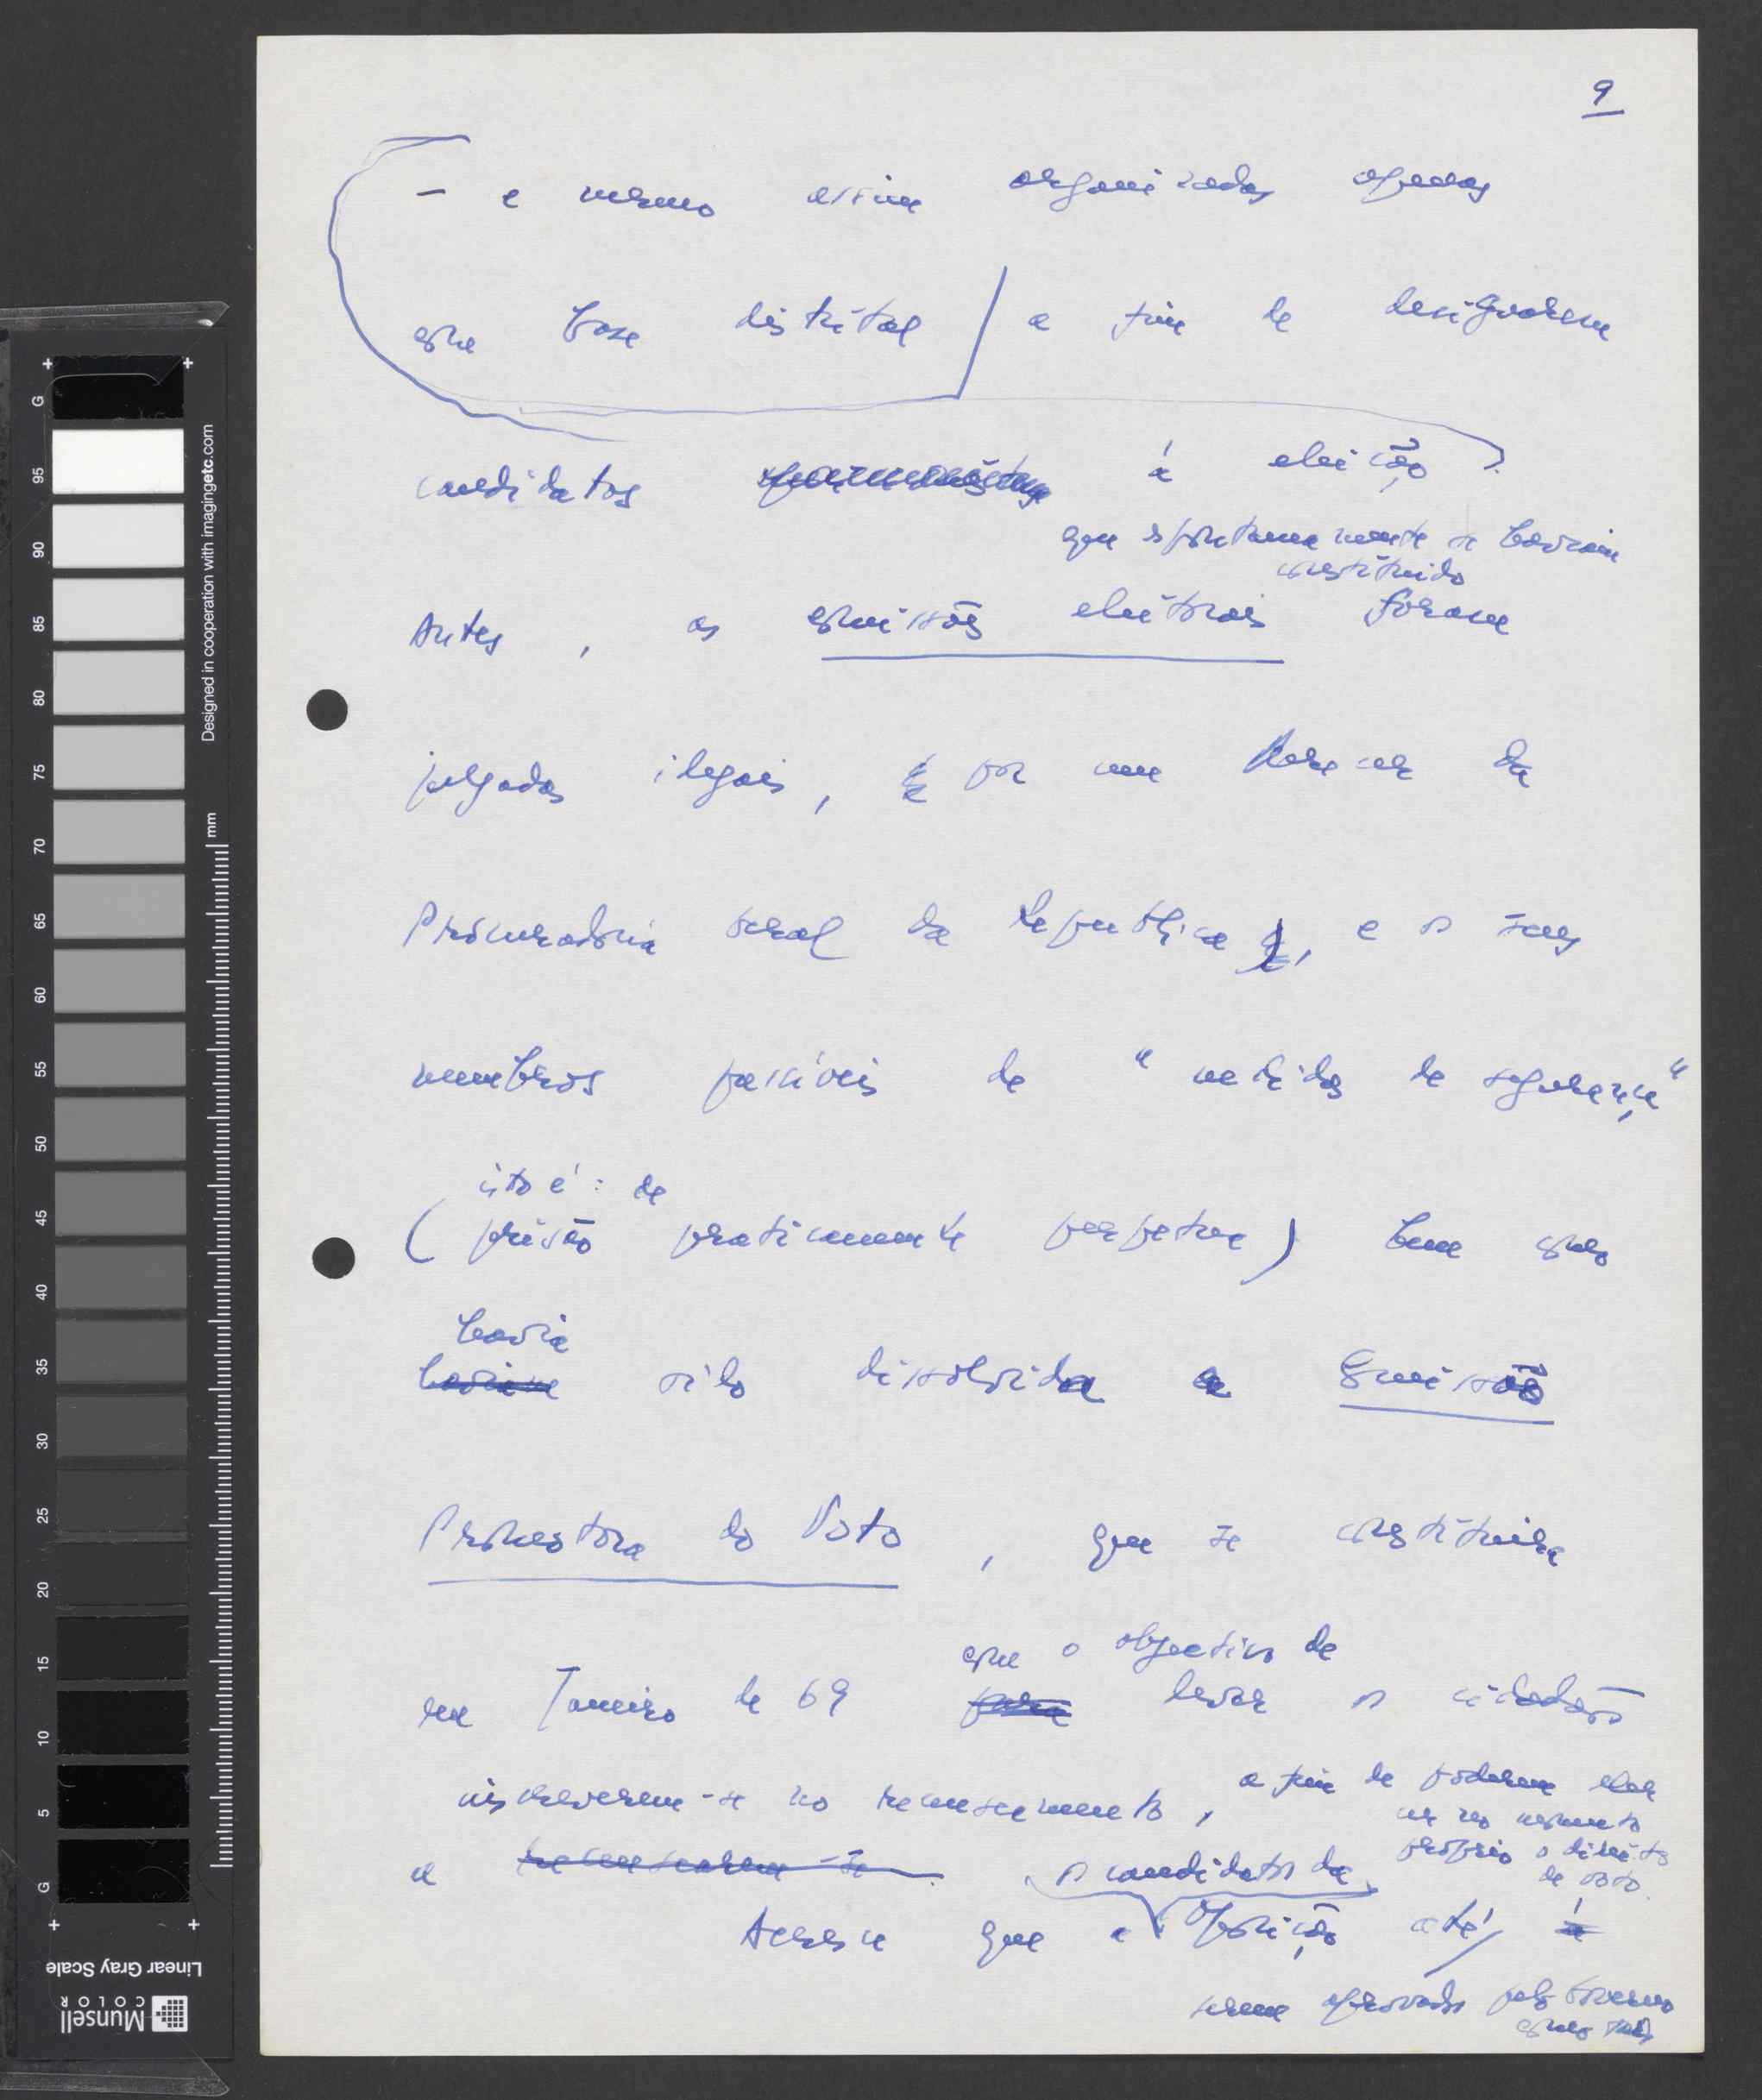 9
– e mesmo assim organizadas apenas
com base distrital / a fim de designarem
candidatos à eleição.
que espontaneamente se haviam
constituído
Antes, as comissões eleitorais foram
julgadas ilegais, por um Parecer da
Procuradoria Geral da República, e os seus
membros passíveis de "medidas de segurança"
isto é: de
(prisão praticamente perpétua) bem como
havia
haviam sido dissolvida a Comissão
Promotora do Voto, que se constituira
com o objectivo de
em Janeiro de 69 para levar os cidadãos
inscreverem-se no recenseamento, a fim de poderem exer
cer no momento
próprio o direito
de voto.
a recensearem-se os candidatos da
Acresce que a Oposição até à
serem aprovados pelo Governo
como tais